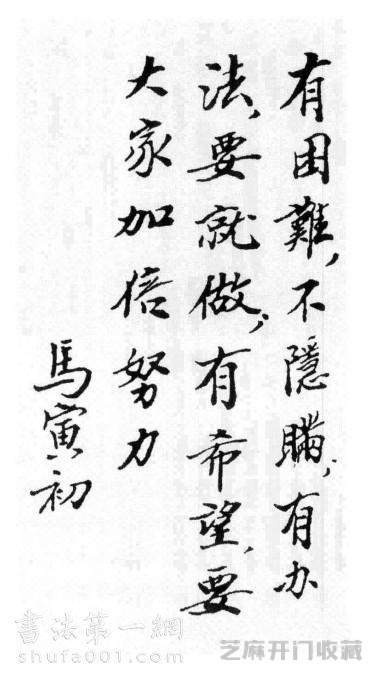 有困難，不隱瞞；有办
法，要就做；有希望，要
大家加倍努力
馬寅初
書法第一網
shufa001.com
芝麻开门收藏